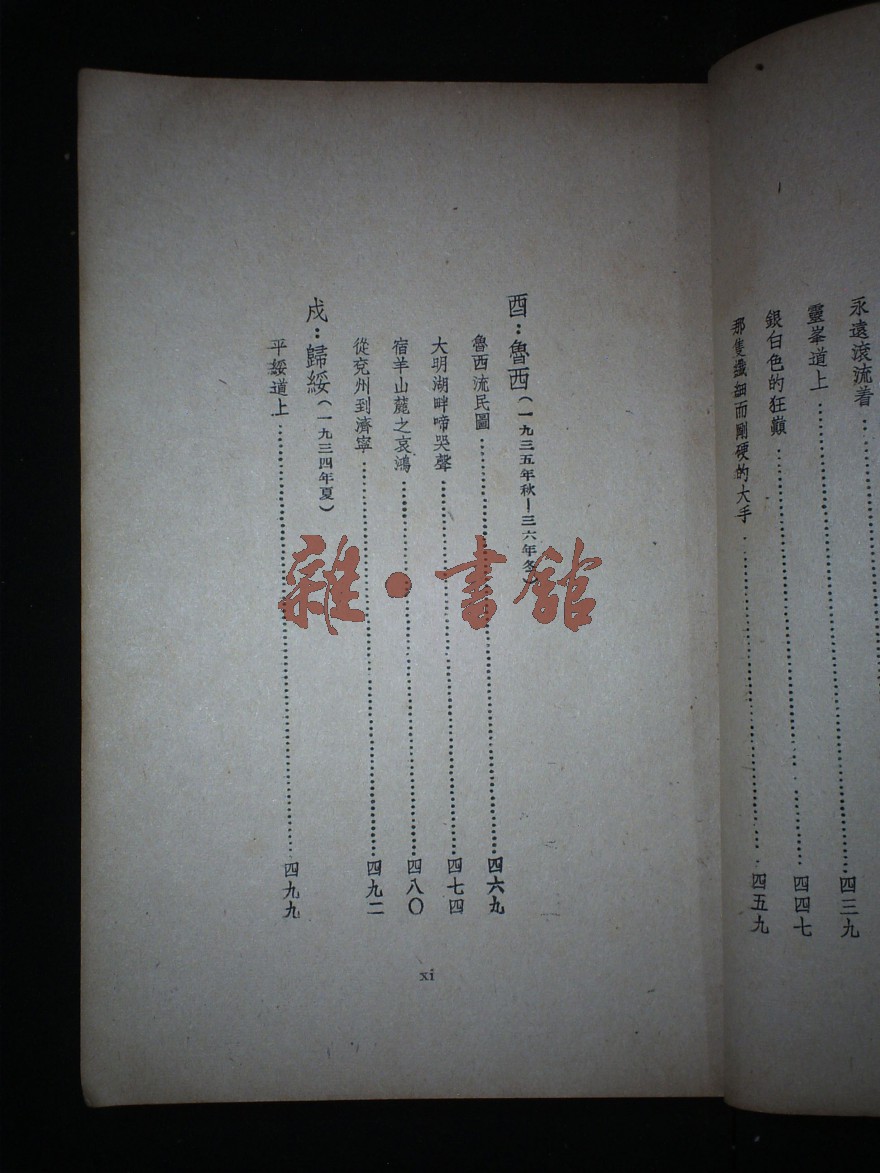 永遠滾流着……四三九
靈峯道上……四四七
銀白色的狂巔……四五九
那隻纖細而剛硬的大手
酉：魯西（一九三五年秋－三六年冬）
魯西流民圖……四六九
大明湖畔啼哭聲……四七四
宿羊山麓之哀鴻……四八〇
從兗州到濟寧……四九二
戍：歸綏（一九三四年夏）
平綏道上……四九九
xi
雜·書館